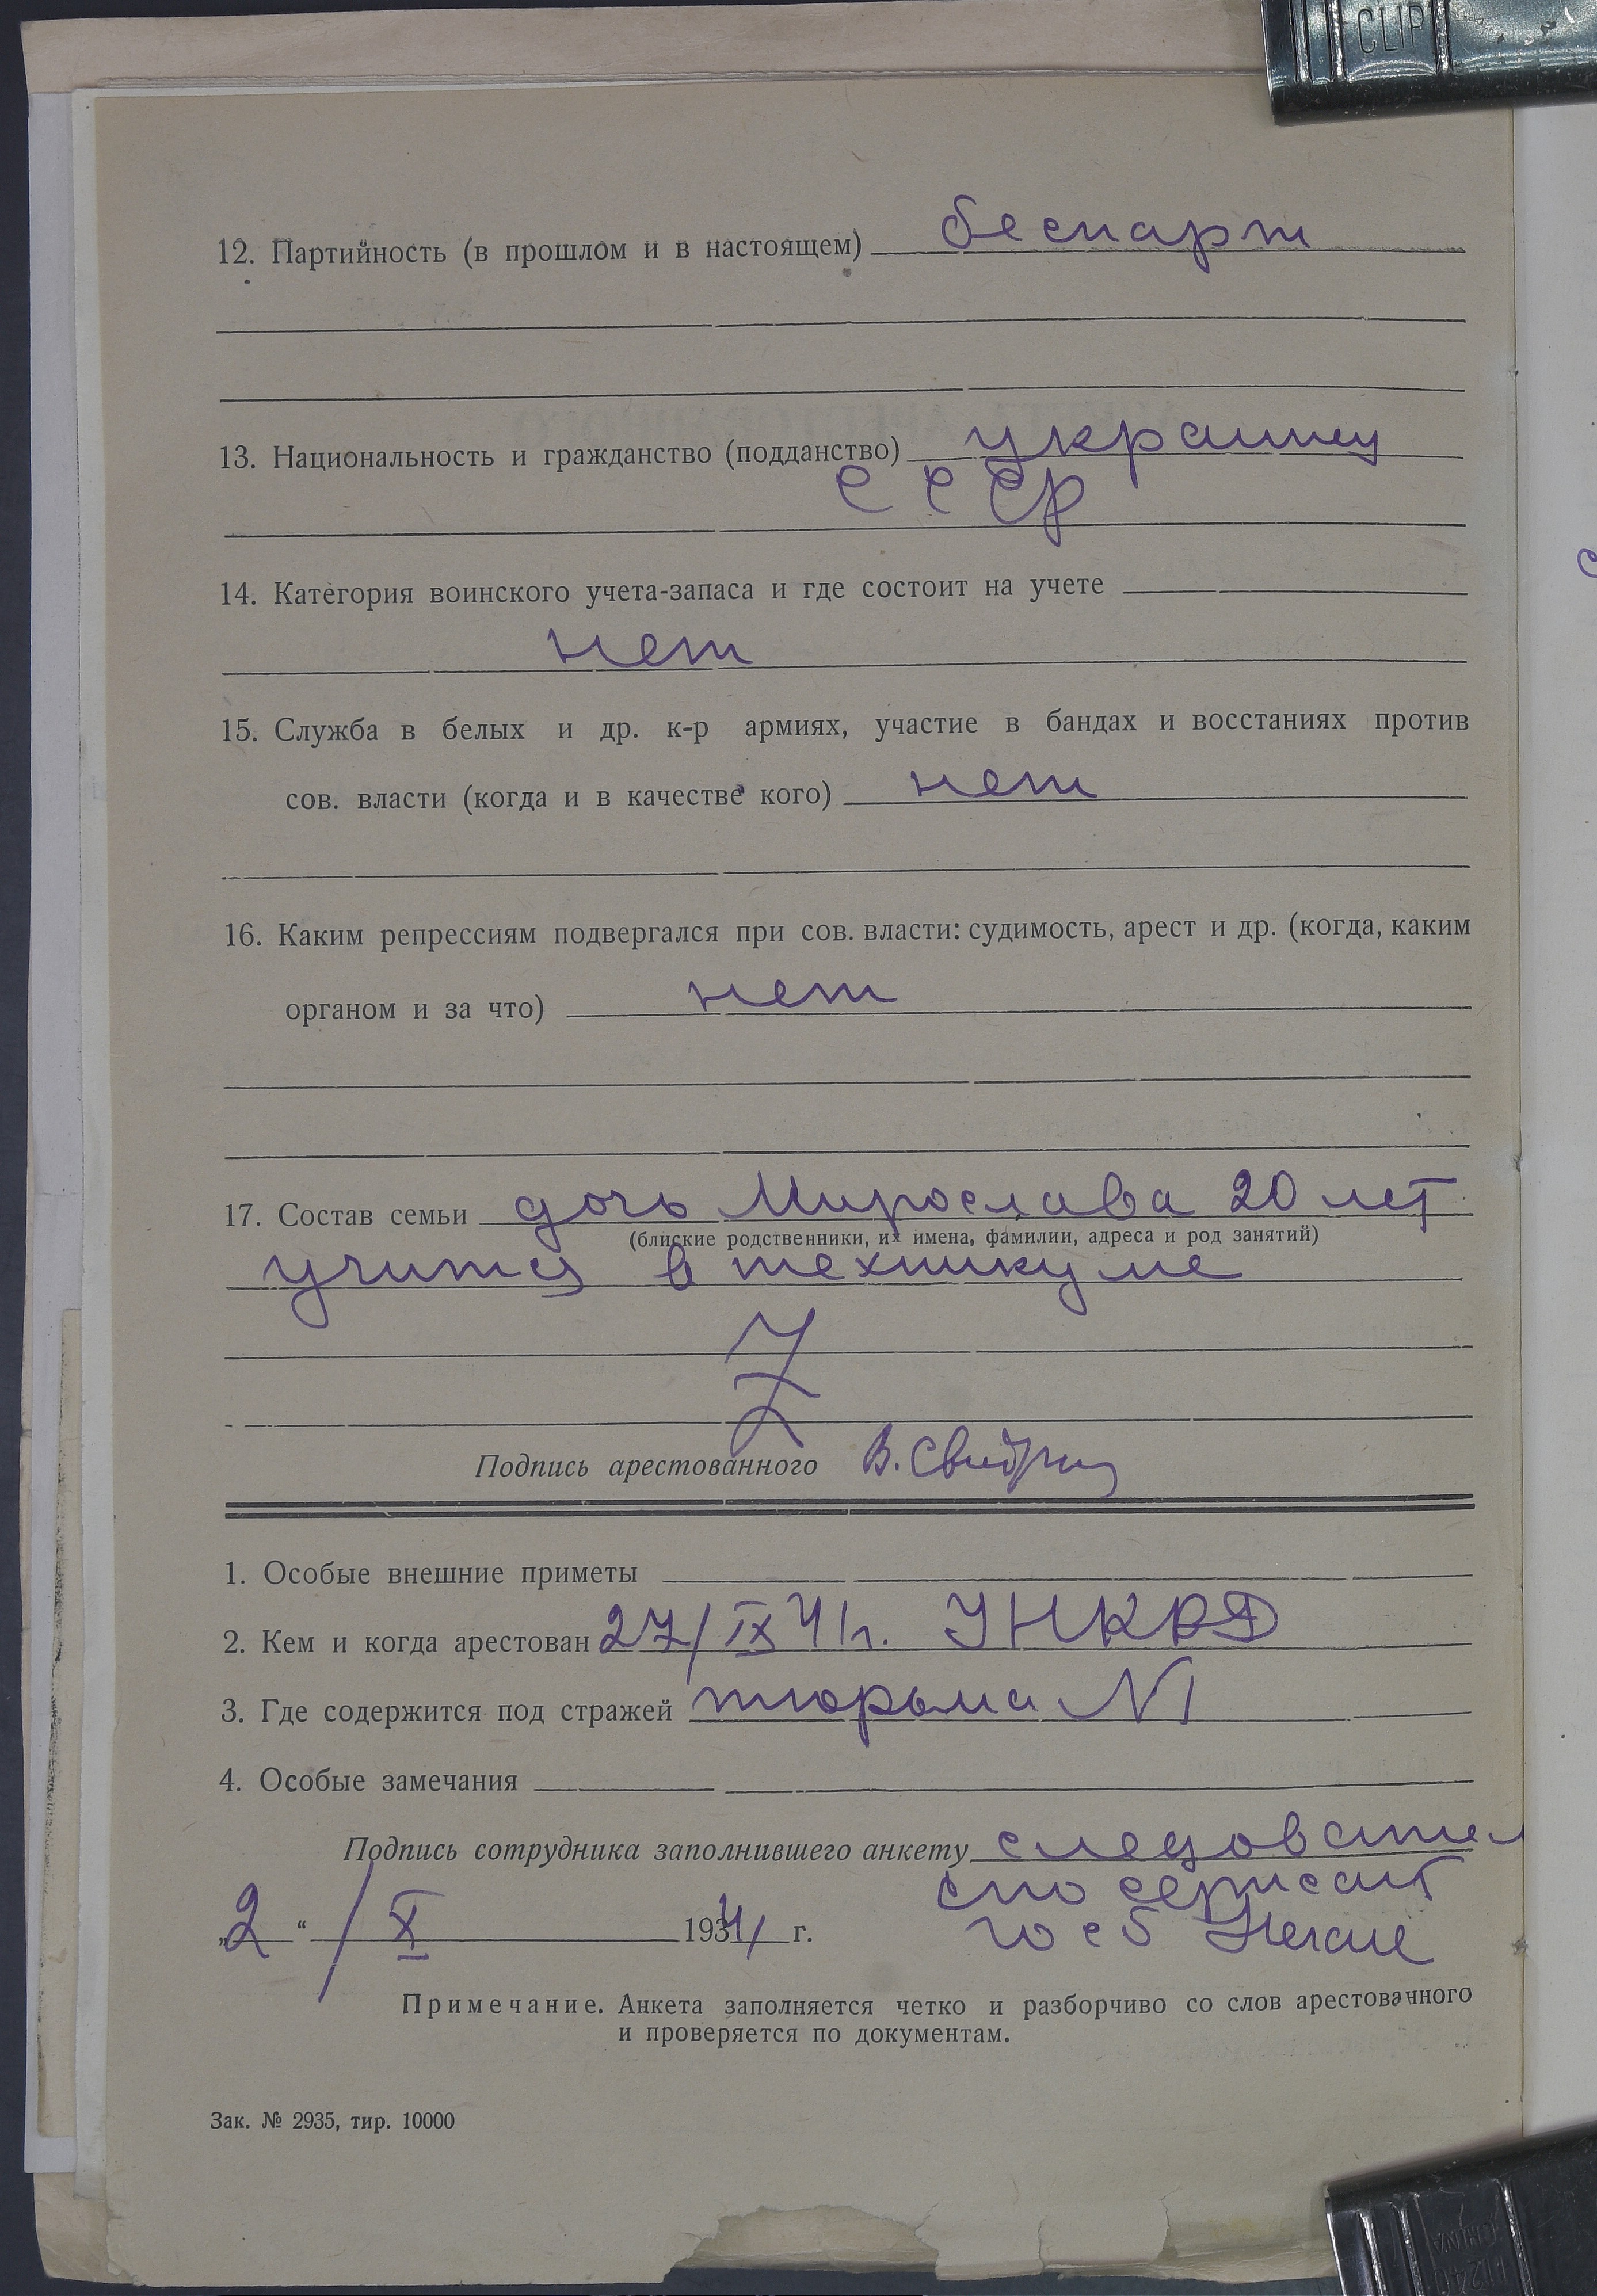 CLIP
12. Партийность (в прошлом и в настоящем) беспарт
13. Национальность и гражданство (подданство) украинец
СССР
14. Категория воинского учета-запаса и где состоит на учете
нет
15. Служба в белых и др. к-р армиях, участие в бандах и восстаниях против
сов. власти (когда и в качестве кого) нет
16. Каким репрессиям подвергался при сов. власти: судимость, арест и др. (когда, каким
органом и за что) нет
17. Состав семьи дочь Мирослава 20 лет
(блиские родственники, их имена, фамилии, адреса и род занятий)
учится в техникуме
Подпись арестованного В. Свидзин
1. Особые внешние приметы
2. Кем и когда арестован 27/IX 41г. УНКВД
3. Где содержится под стражей тюрьма N1
4. Особые замечания
Подпись сотрудника заполнившего анкету следовател
сло сержант
„2“ / X 1941 г. госб
Примечание. Анкета заполняется четко и разборчиво со слов арестованного
и проверяется по документам.
Зак. № 2935, тир. 10000